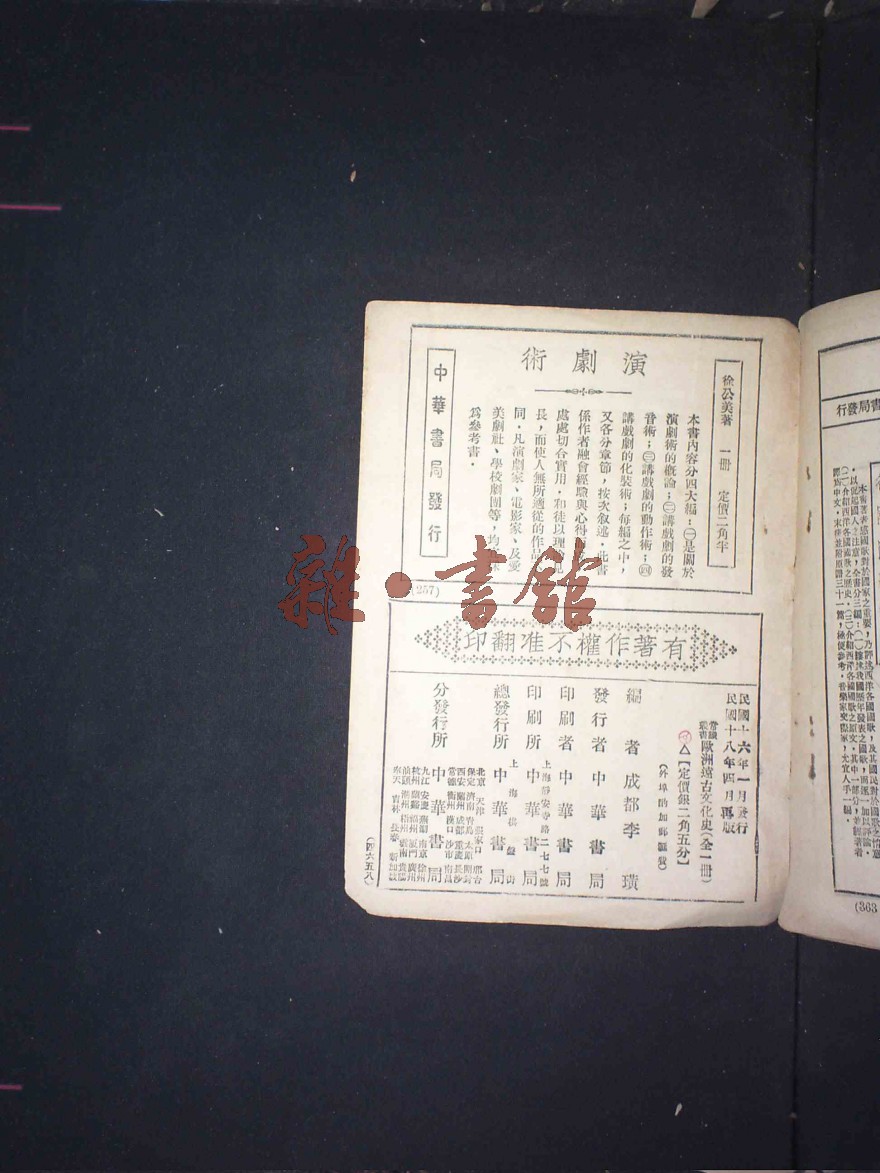 演劇術
徐公美著 一冊 定價二角半
本書內容分四大編:㊀是關於
演劇術的概論;㊁講戲劇的發
音術;㊂講戲劇的動作術;㊃
講戲劇的化裝術;每編之中,
又各分章節,按次敘述.此書
係作者融會經驗與心得
處處切合實用.和徒以理
長,而使人無所適從的作品
同.凡演劇家、電影家、及愛
美劇社、學校劇團等,均
為參考書.
中華書局發行
(257)
雜·書館
有著作權不准翻印
民國十六年一月發行
民國十八年四月再版
常識叢書 歐洲遠古文化史(全一冊)
【定價銀二角五分】
(外埠酌加郵匯費)
編者 成都李璜
發行者 中華書局
印刷者 中華書局
印刷所 上海靜安寺路二七七號 中華書局
總發行所 上海棋盤街 中華書局
分發行所 中華書局
北京 天津 張家口 邢台
保定 濟南 青島 太原 開封
西安 蘭州 成都 重慶 長沙
常德 衡州 漢口 沙市 南昌
九江 安慶 蕪湖 南京 徐州
杭州 蘭谿 福州 廈門 廣州
汕頭 潮州 梧州 雲南 貴陽
奉天 吉林 長春 新加坡
(四六五八)
書局發行
本書著者感國歌對於國家之重要,乃評述西洋各國國歌,及其國民對於國歌之情意
(363